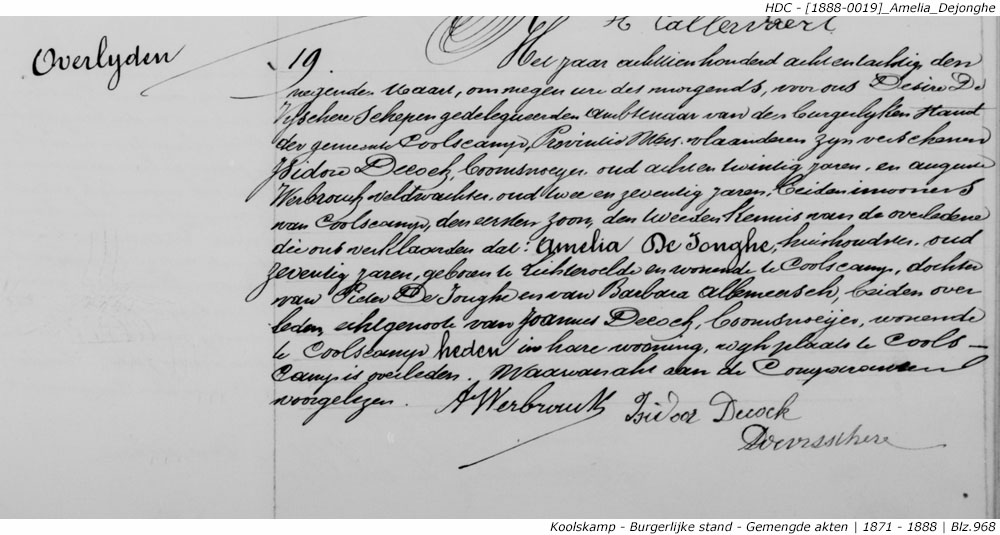 HDC - [1888-0019]_Amelia_Dejonghe
H Callewaert
Overlyden
19 Het jaar achttienhonderd acht en tachtig den
negenden Maart, om negen ure des morgends, voor ons Desiré De
Visschere Schepen gedelegueerden Ambtenaar van den burgerlyken Stand
der gemeente Coolscamp, Provintie West-vlaanderen zyn verschenen
Isidoor Decock, boomsnoeyer, oud acht en twintig jaren, en august
Werbrouck veldwachter, oud twee en zeventig jaren, beiden inwooners
van Coolscamp, den eersten zoon, den tweeden Kennis van de overledene
die ons verklaarden dat: Amelia De Jonghe, huishoudster, oud
zeventig jaren, geboren te Lichtervelde en wonende te Coolscamp, dochter
van Pieter De Jonghe en van Barbara Allemeersch, beiden over
leden, echtgenoote van Joannes Decock, boomsnoeijer, wonende
te Coolscamp heden in hare wooning, wyk plaats te Cools-
camp is overleden. Waarvan akt aan de Comparanten
voorgelezen. A Werbrouck Isidoor Decock
Devisschere
Koolskamp - Burgerlijke stand - Gemengde akten | 1871 - 1888 | Blz.968